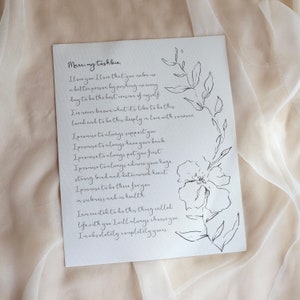 I love you. I love that you make me
a better person by pushing me every
day to be the best version of myself.
I've never known what it's like to be this
loved and to be this deeply in love with someone.
I promise to always support you
I promise to always have your back
I promise to always put you first
I promise to always admire your huge
strong loud and determined heart.
I promise to be there for you
in sickness and in health
to do this thing called
life with you. I will always choose you
I'm absolutely completely yours